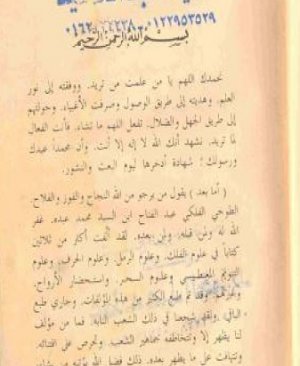 ٠١٢٢٩٥٣٥٢٩ - ٠١٦٢
بسم الله الرحمن الرحيم
نحمدك اللهم يا من علمت من تريد. ووفقته إلى نور
العلم. وهديته إلى طريق الوصول وصرفت الأغبياء. وحولتهم
إلى طريق الجهل والضلال. تفعل اللهم ما تشاء. فأنت الفعال
لما تريد. نشهد أنك الله لا إله إلا أنت. وأن محمداً عبدك
ورسولك؛ شهادة أدخرها ليوم البعث والنشور.
( أما بعد ) يقول من يرجو من الله النجاح والفوز والفلاح.
الطوخي الفلكي عبد الفتاح ابن السيد محمد عبده. غفر
الله له ولمن قبله. ولمن بعده. لقد ألفت أكثر من ثلاثين
كتاباً في علوم الفلك. وعلوم الرمل. وعلوم الحرف. وعلوم
التنويم المغنطيسي وعلوم السحر. واستحضار الأرواح.
وغيرهم. وقد تم طبع الكثير من هذه المؤلفات. وجاري طبع
الباقي. ولقد شجعنا في ذلك الشعب النابه. فما من مؤلف
لنا يظهر إلا وتتخاطفه جماهير الشعب. وتحرص على اقتنائه.
وتتهافت على ما يظهر بعده. ذلك فضل الله يؤتيه من يشاء